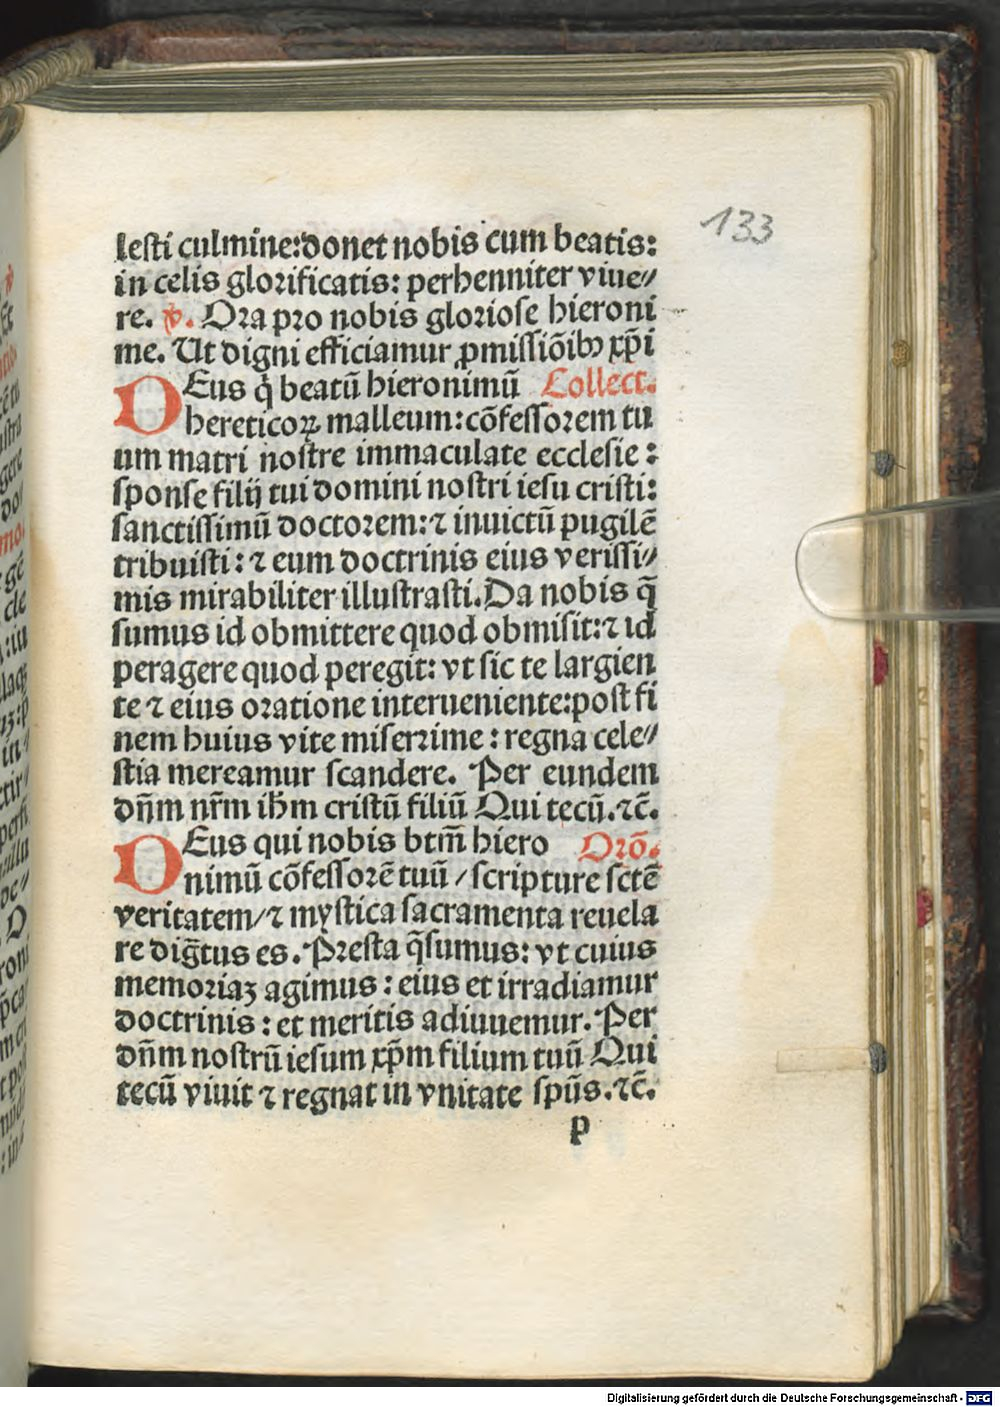 133
lesti culmine: donet nobis cum beatis:
in celis glorificatis: perhenniter viue⸗
re. ℣. Ora pro nobis gloriose hieroni
me. Ut digni efficiamur ꝓmissiōibꝰ xp̄i
DEus q̇ beatū hieronimū Collect.
hereticoꝝ malleum: cōfessorem tu
um matri nostre immaculate ecclesie:
sponse filij tui domini nostri iesu cristi:
sanctissimū doctorem: ⁊ inuictū pugilē
tribuisti: ⁊ eum doctrinis eius verissi⸗
mis mirabiliter illustrasti. Da nobis q̄
sumus id obmittere quod obmisit: ⁊ id
peragere quod peregit: vt sic te largien
te ⁊ eius oratione interueniente: post fi
nem huius vite miserrime: regna cele⸗
stia mereamur scandere. Per eundem
dn̄m nr̄m ih̄m cristū filiū Qui tecū. ⁊c̄.
DEus qui nobis btm̄ hiero Orō.
nimū cōfessorē tuū / scripture sctē
veritatem / ⁊ mystica sacramenta reuela
re diḡtus es. Presta q̄sumus: vt cuius
memoriaꝫ agimus: eius et irradiamur
doctrinis: et meritis adiuuemur. Per
dn̄m nostrū iesum xp̄m filium tuū Qui
tecū viuit ⁊ regnat in vnitate spūs. ⁊c̄.
p
Digitalisierung gefördert durch die Deutsche Forschungsgemeinschaft - DFG